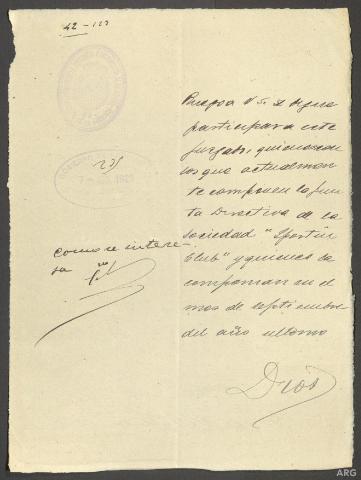 42-123
Ruego a V.S. se digne
participar a este
Juzgado, quienes son
los que actualmen-
te componen la Jun-
ta Directiva de la
Sociedad "Sportin
Club" y quienes la
componian en el
mes de septiembre
del año ultimo
Dios
235
como se intere-
sa
ARG